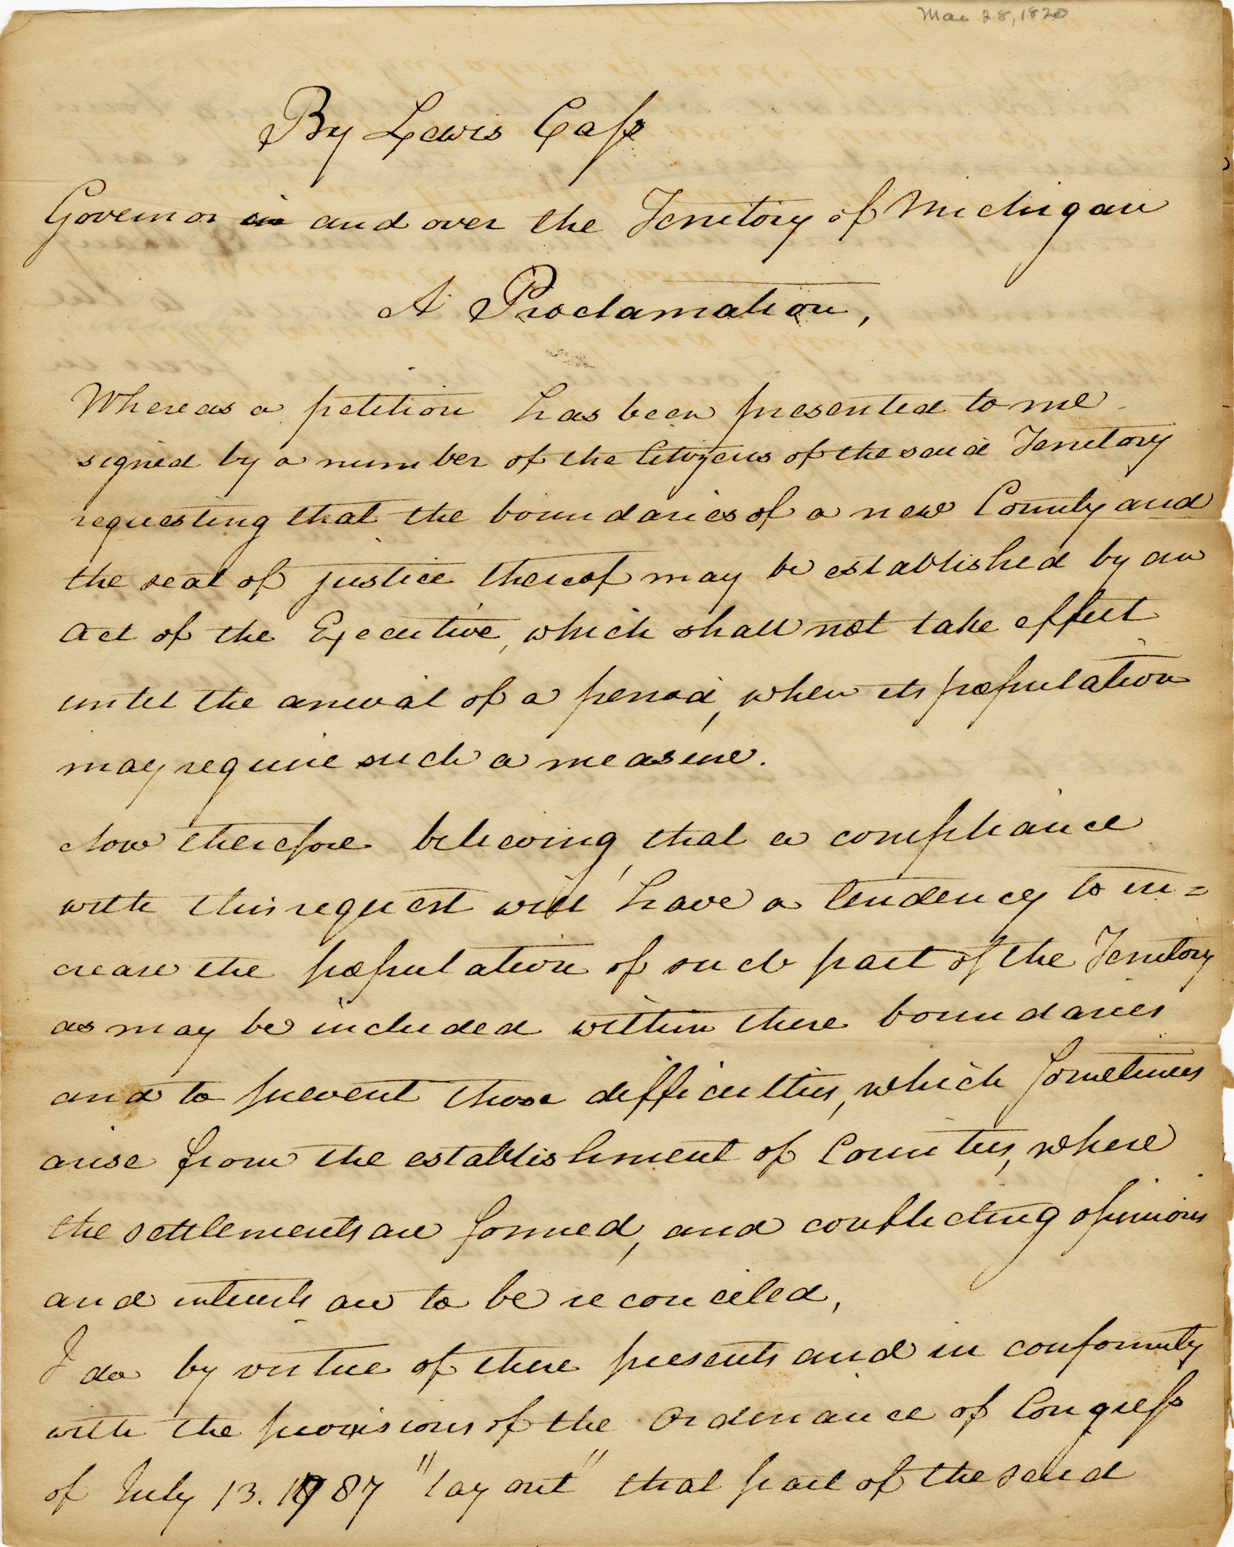 Mar 28, 1820
By Lewis Cass
Governor in and over the Territory of Michigan
A Proclamation,
Whereas a petition has been presented to me
signed by a number of the Citizens of the said Territory
requesting that the boundaries of a new County and
the seat of justice thereof may be established by an
act of the Executive, which shall not take effect
until the arrival of a period, when its population
may require such a measure.
Now therefore believing, that a compliance
with this request will have a tendency to in=
crease the population of such part of the Territory
as may be included within these boundaries
and to prevent those difficulties, which sometimes
arise from the establishment of Counties, where
the settlements are formed, and conflicting opinions
and interests are to be reconciled,
I do by virtue of these presents and in conformity
with the provisions of the Ordinance of Congress
of July 13. 1787 "lay out" that part of the said